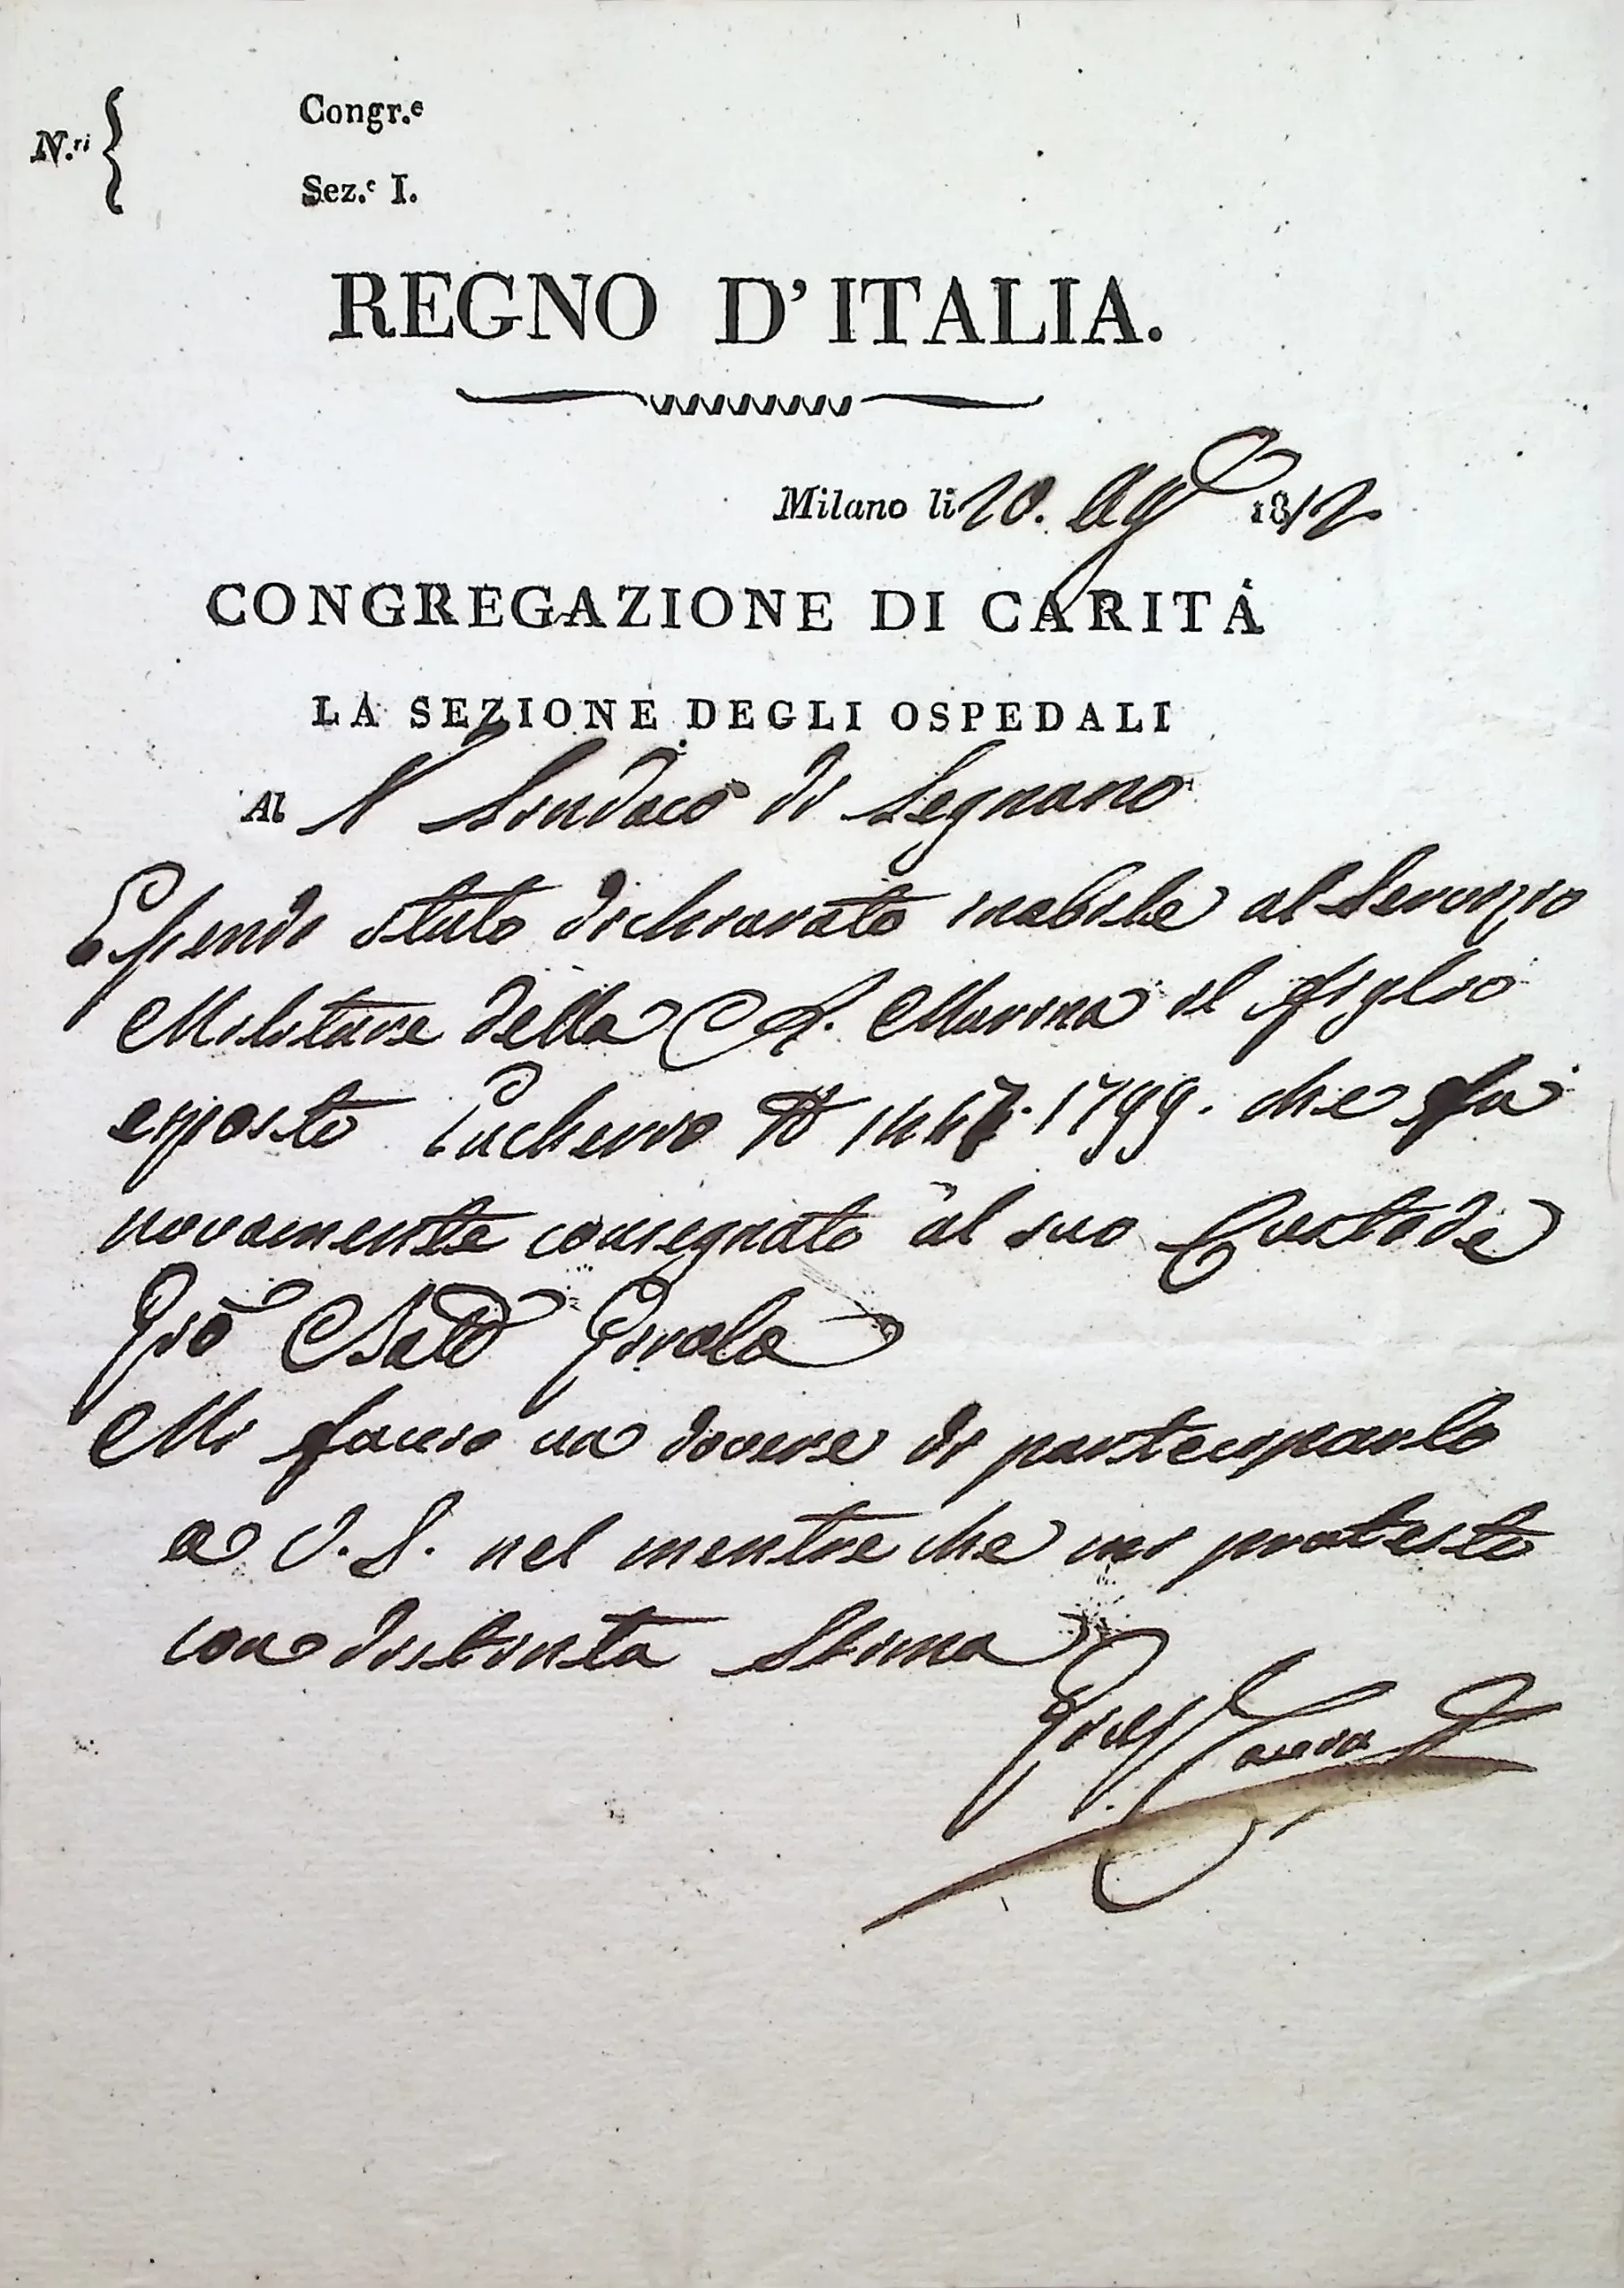 N.ri { Congr.e
Sez.e I.
REGNO D'ITALIA.
Milano li 20. Ago 1812
CONGREGAZIONE DI CARITÀ
LA SEZIONE DEGLI OSPEDALI
Al Sindaco di Legnano
Essendo stato dichiarato inabile al Servizio
Militare della R. Marina il figlio
esposto 1799. che fu
novamente consegnato al suo Custode
Gio Batt
Mi faccio un dovere di parteciparlo
a V. S. nel mentre che mi protesto
con distinta Stima